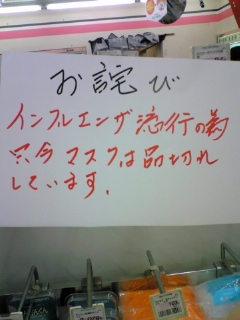 お詫び
インフルエンザ流行の為
只今マスクは品切れ
しています.